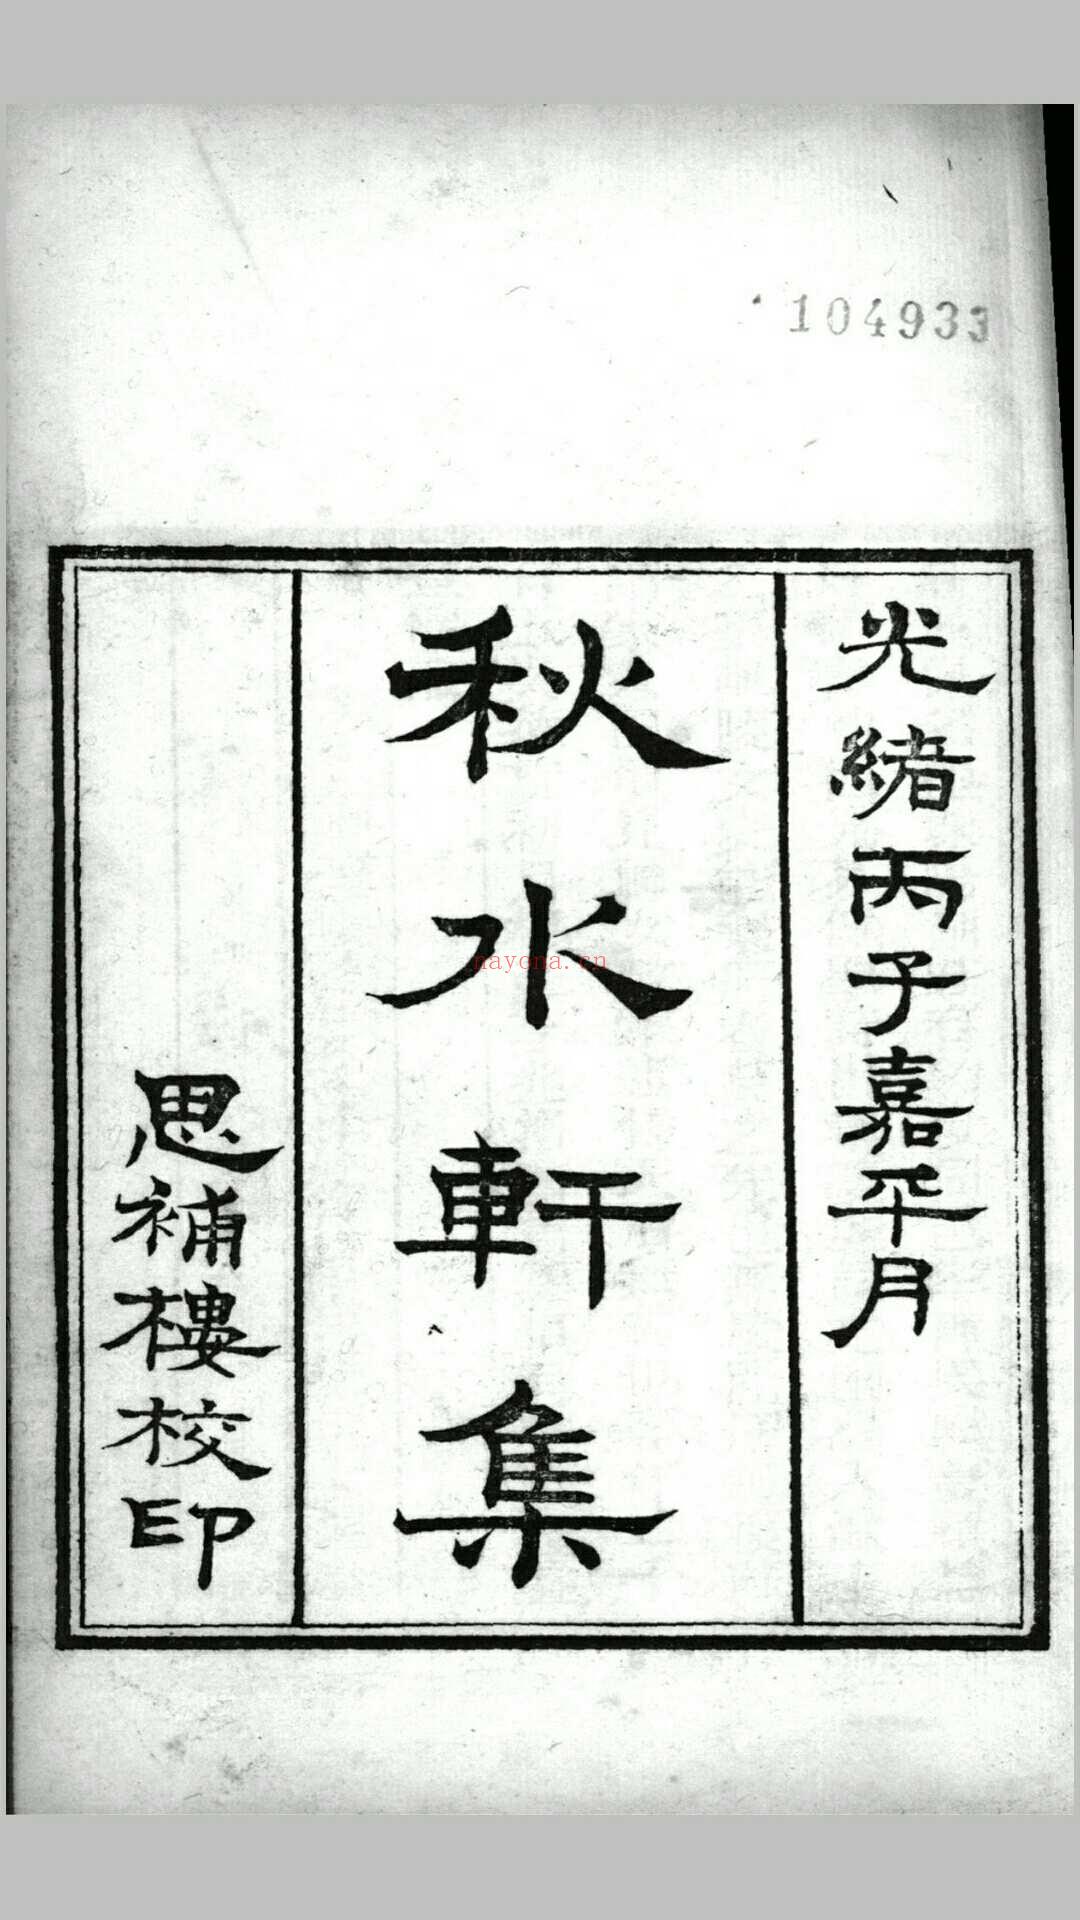 104933
光緒丙子嘉平月
秋水軒集
nayona.cn
思補樓校印